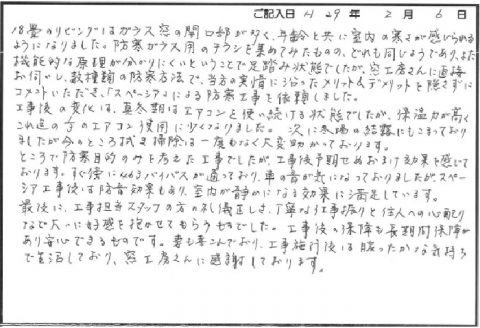 ご記入日 H 29年 2月 6日
18畳のリビングはガラス窓の開口部が多く、年齢と共に室内の寒さが感じられる
ようになりました。防寒ガラス用のチラシを集めてみたものの、どれも同じようであり、また
機能的な原理が分かりにくいということで足踏み状態でしたが、窓工房さんに直接
お伺いし、数種類の防寒方法で、当方の実情に沿ったメリット&デメリットを隠さずに
コメントいただき、「スペーシア」による防寒工事を依頼しました。
工事後の変化は、真冬期はエアコンを使い続ける状態でしたが、保温力が高く
これ迄の のエアコン使用に少くなりました。次に冬場の結露にもこまっており
ましたが今のところ拭き掃除は一度もなく大変助かっております。
ところで防寒目的のみを考えた工事でしたが、工事後予期せぬおまけ効果を感じて
おります。すぐ後に バイパスが通っており、車の音が気になっておりましたがスペー
シア工事後は防音効果もあり、室内が静かになる効果に満足しています。
最後に、工事担当スタッフの方の礼儀正しさ、丁寧なる工事振りと住人への心配り
など大いに好感を抱かせてもらうものでした。工事後の保障も長期間保障が
あり安心できるものです。妻も喜んでおり、工事施行後は暖ったかな気持ち
で生活しており、窓工房さんに感謝しております。